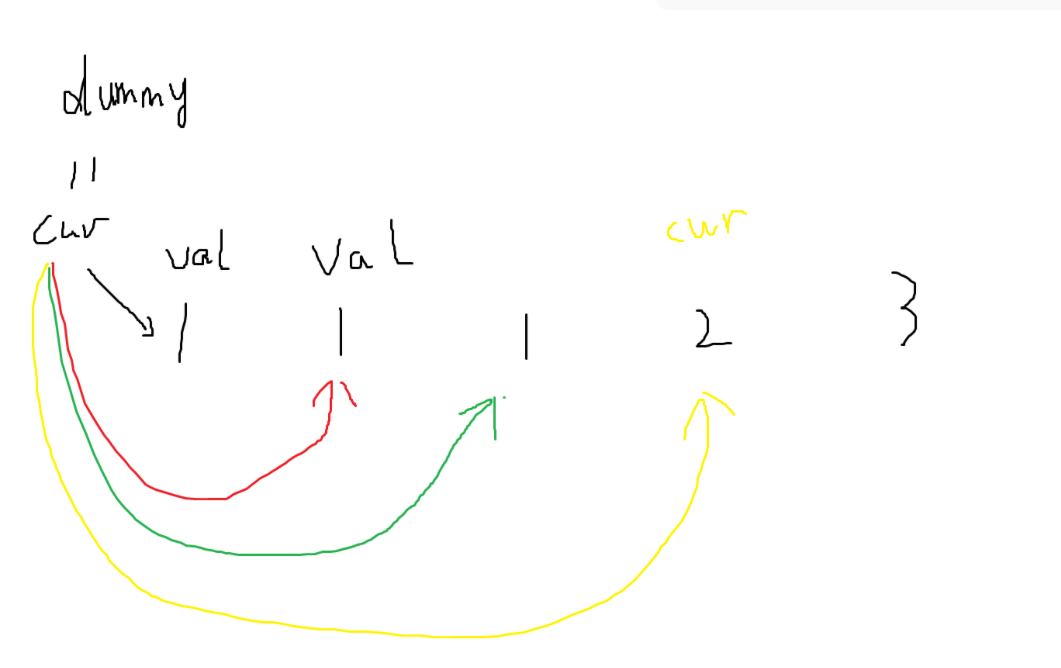 dummy
||
cur
val val cur
1 1 1 2 3